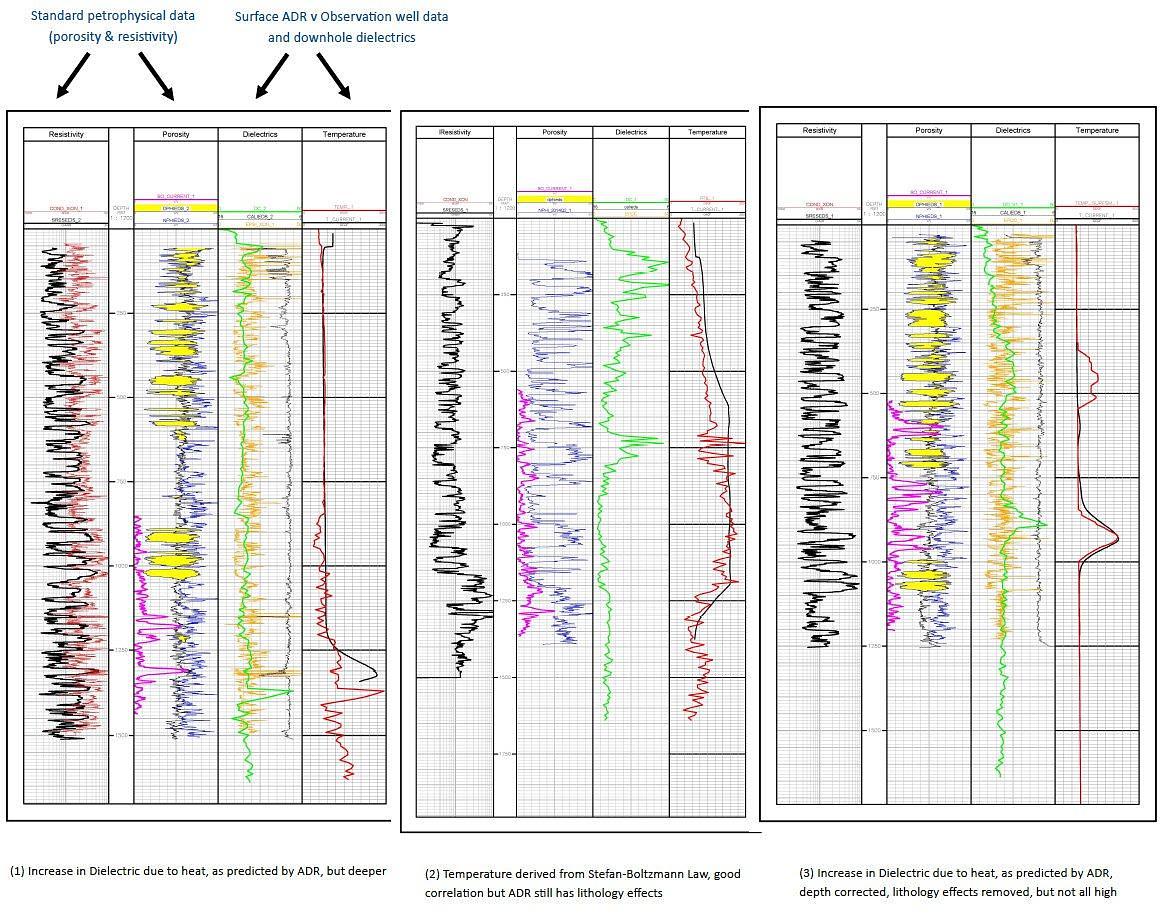 Standard petrophysical data
(porosity & resistivity)
Surface ADR v Observation well data
and downhole dielectrics
Resistivity Porosity Dielectrics Temperature
SO_CURRENT_1
DEPTH
1 : 1200
CALIEDS_2
T_CURRENT_1
SRESEDS_2
NPHIEDS_2
250
500
750
1000
1250
1500
Resistivity Porosity Dielectrics Temperature
SO_CURRENT_1
COND_XON
DEPTH
1 : 1200
SRESEDS_1
T_CURRENT_1
1000
1250
1500
1750
Resistivity Porosity Dielectrics Temperature
SO_CURRENT_1
COND_XON
DPHIEDS_1
DEPTH
1 : 1200
CALIEDS_1
SRESEDS_1
NPHIEDS_1
T_CURRENT_1
250
500
750
1000
1250
1500
(1) Increase in Dielectric due to heat, as predicted by ADR, but deeper
(2) Temperature derived from Stefan-Boltzmann Law, good
correlation but ADR still has lithology effects
(3) Increase in Dielectric due to heat, as predicted by ADR,
depth corrected, lithology effects removed, but not all high